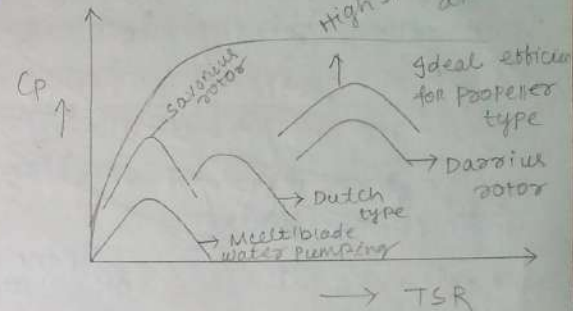 High
Cp
Savonius
rotor
Ideal efficien
for propeller
type
Darrius
rotor
Dutch
type
Multiblade
water pumping
TSR